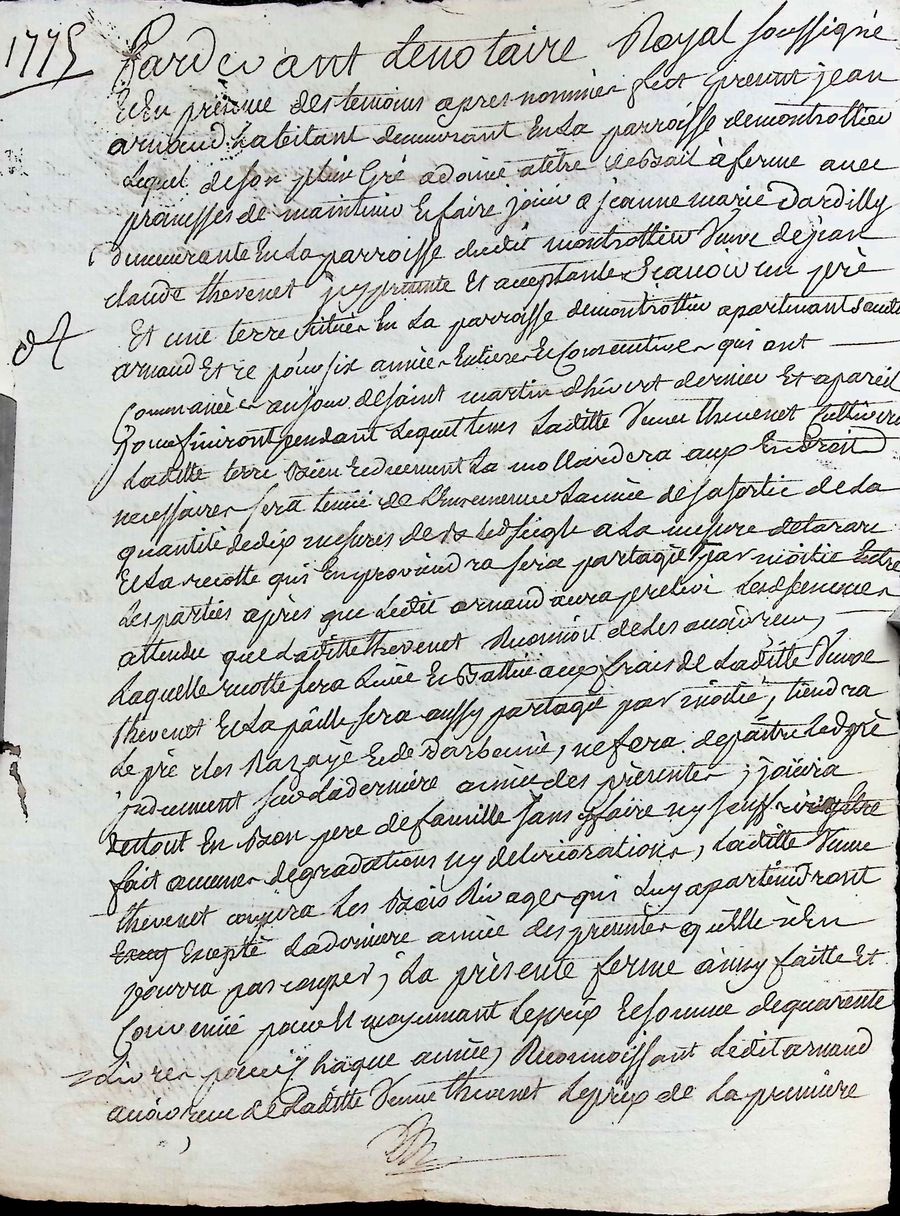 1775
Pardevant le notaire Royal soussigné
et en présence des temoins apres nommés fut present jean
arnaud habitant demeurant en la parroisse de montrottier
Lequel de son plein Gré a donné a tître de Bail à ferme avec
promesses de maintenir et faire jouir a jeanne marie Dardilly
Demeurante en la parroisse dudit montrottier Veuve de jean
claude thevenet jcy presente et aceptante scavoir un pré
Et une terre située En La parroisse de montrottier apartenant audit
arnaud Et ce pour six années Entieres Et Consecutives qui ont
Commancées au jour de saint martin d'hivert dernier Et a pareil
jour finiront pendant Lequel tems Laditte Veuve thevenet Cultivera
Laditte terre Bien et duement La mollardera aux Endroits
necessaires sera tenue de L'ensemencer L'année de sa sortie de La
quantité de dix mesures de Bled seigle a La mesure de tarare
Et La recolte qui En proviendra sera partagée par moitié Entre
Les parties après que Ledit arnaud aura prelevé Les semences
attendu que Laditte thevenet Reconnoit de Les avoir reçu
Laquelle recolte sera Levée Et Battue aux frais de Laditte Veuve
thevenet Et La pâille sera aussy partagé par moitié, tiendra
Le pré clos Razayé Et de Barbenné, ne fera depaître Led pré
jndument sur La derniere année des présentes, joüira
du tout En Bon pere de famille sans y faire ny souffrir
fait aucunes degradations ny deteriorations, Laditte Veuve
thevenet coupera Les Bois Rivages qui Luy apartiendront
Excepté La derniere année des presentes qu'elle n'En
pourra pas couper; La présente ferme ainsy faitte Et
Convenüe pour Et moyennant Le prix Et somme de quarente
Livres pour Chaque année, Reconnoissant Ledit arnaud
avoir reçu de Laditte Veuve thevenet Le prix de La premiere